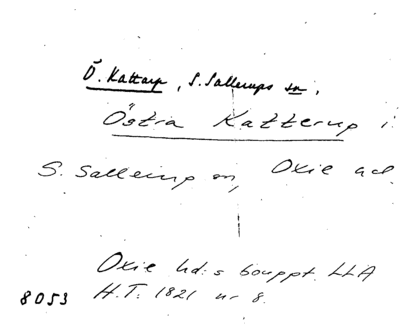 Ö. Kattarp, S. Sallerups sn,
Östra Katterup i
S. Sallerup sn, Oxie hd.
Oxie hd:s bouppt. LLA
8053 H.T. 1821 nr 8.